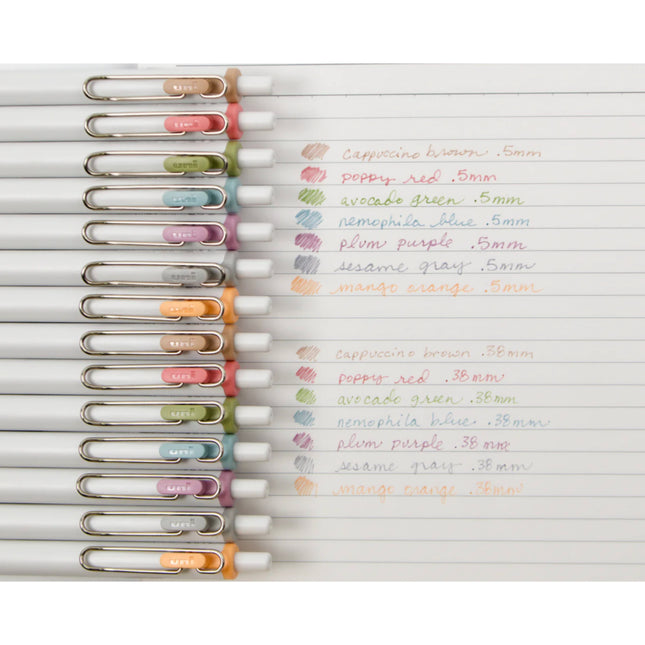 cappuccino brown .5mm
poppy red .5mm
avocado green .5mm
nemophila blue .5mm
plum purple .5mm
sesame gray .5mm
mango orange .5mm
cappuccino brown .38mm
poppy red .38mm
avocado green .38mm
nemophila blue .38mm
plum purple .38mm
sesame gray .38mm
mango orange .38mm